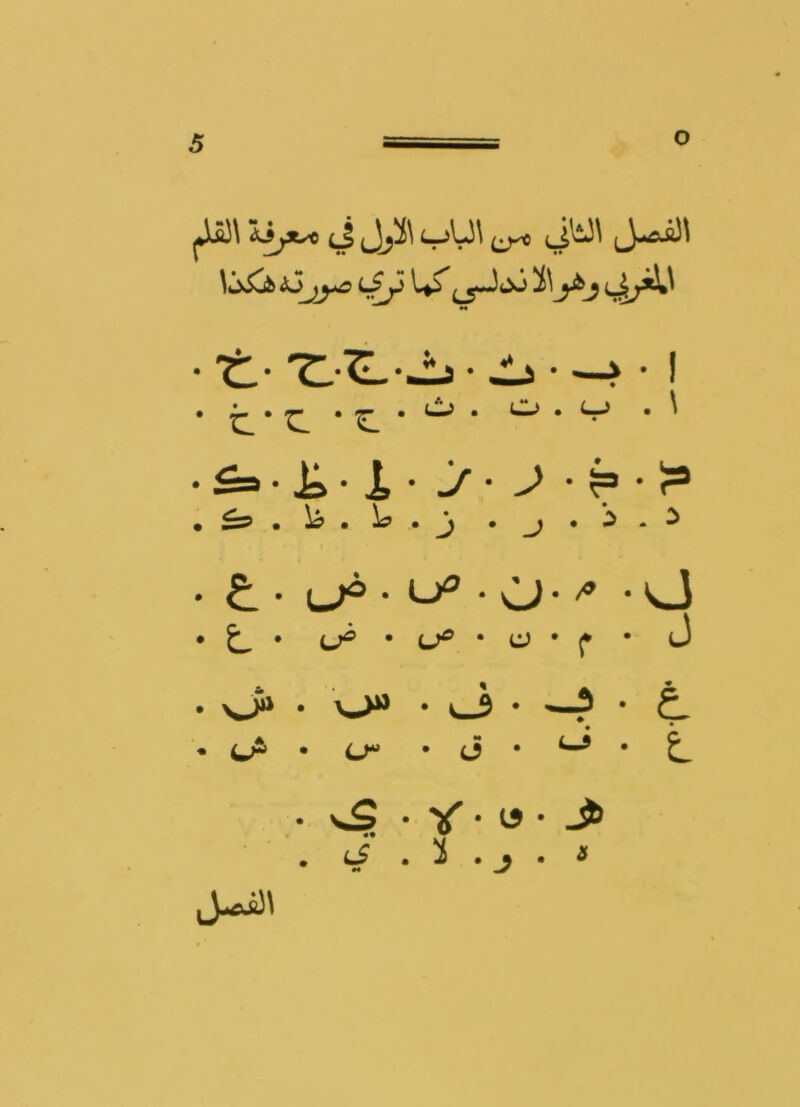 5 ٥
الفصل الثاني من الباب الاول في معرفة القلم
المغربي وهو الاندلسي كما تري صورته هكذا
ا · ب · ت · ث · ج · ح · خ ·
ا · ب · ت · ث · ج · ح · خ ·
د · ذ · ر · ز · ط · ظ · ك ·
د · ذ · ر · ز · ط · ظ · ك ·
ل · م · ن · ص · ض · ع ·
ل · م · ن · ص · ض · ع ·
غ · ف · ق · س · ش ·
غ · ف · ق · س · ش ·
ه · و · لا · ي ·
ه · و · لا · ي ·
الفصل